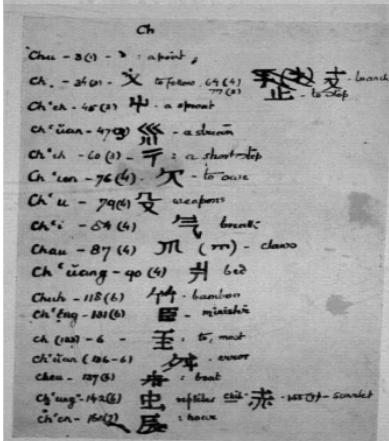 Ch
Chu - 3(1) - 丶 : a point,
Ch. - 34(3) - 夂 to follow, 64(4) 支 - branch
77(3) 止 - to stop
Ch'eh - 45(3) 屮 - a sprout
Ch'üan - 47(3) 巛 - a stream
Ch'ih - 60(3) - 彳 : a short step
Ch'ien - 76(4) - 欠 - to owe
Ch'u - 79(4) 殳 weapons
Ch'i - 84 (4) 气 breath
Chau - 87 (4) 爪 (爫) - claws
Ch'üang - 90 (4) 爿 bed
Chuh - 118(6) 竹 - bamboo
Ch'ĕng - 131(6) 臣 - minister
Ch (133) - 6 - 至 : to, most
Ch'üan (136-6) 舛 - error
Cheu - 137(6) 舟 : boat
Ch'ung - 142(6) 虫 reptiles 赤 - 155(7) - scarlet
Ch'en - 161(7) 辰 : hour